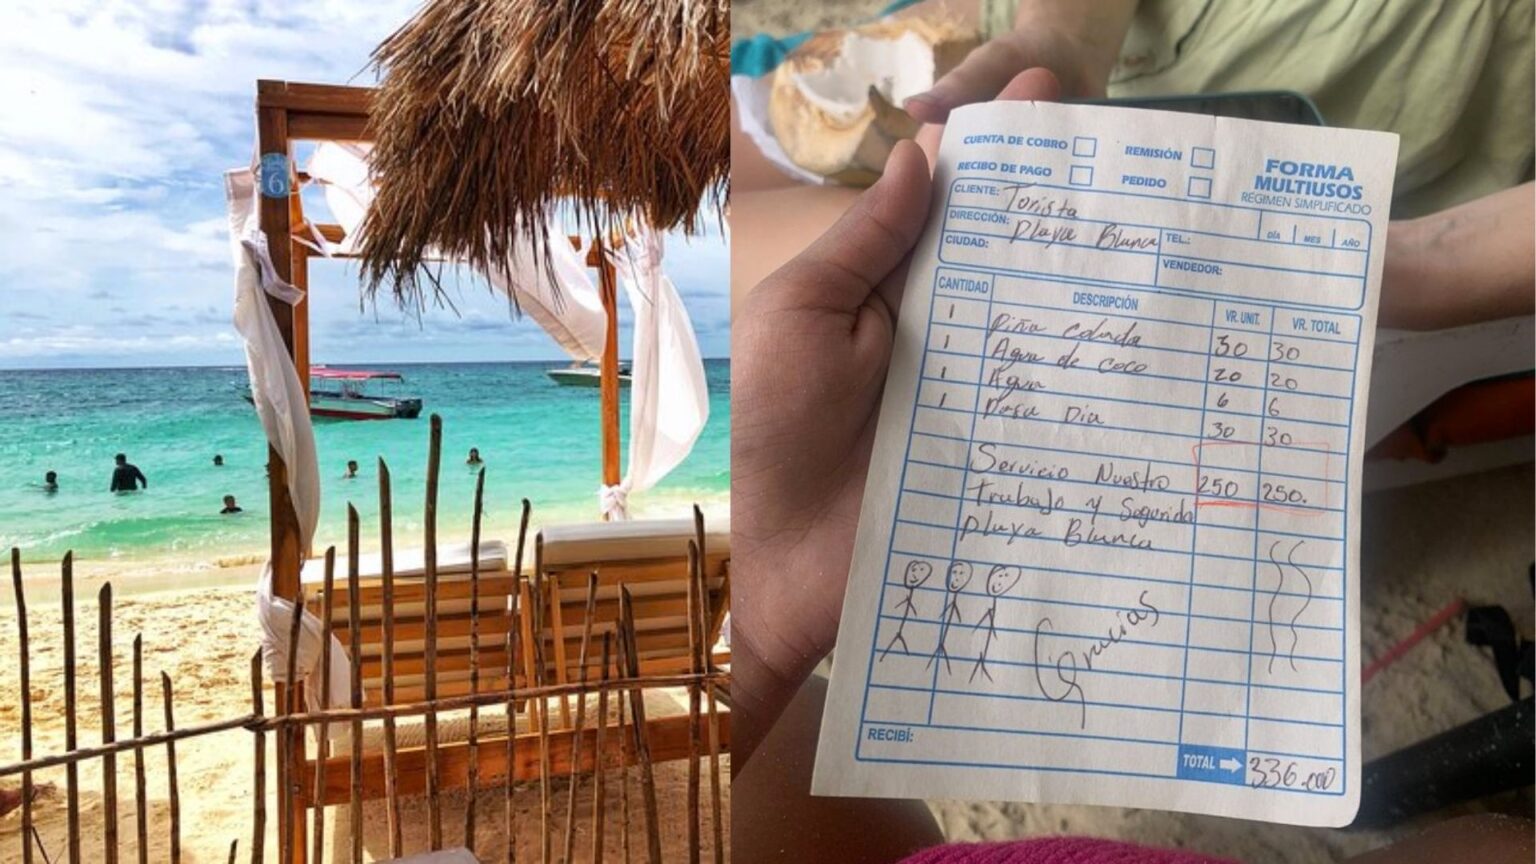 6
CUENTA DE COBRO
REMISIÓN
RECIBO DE PAGO
PEDIDO
FORMA
MULTIUSOS
REGIMEN SIMPLIFICADO
CLIENTE: Torista
DIRECCIÓN: Playa Blanca TEL.: DÍA MES AÑO
CIUDAD: VENDEDOR:
CANTIDAD DESCRIPCIÓN VR. UNIT. VR. TOTAL
1 Piña colada 30 30
1 Agua de coco 20 20
1 Agua 6 6
1 Pasa Dia 30 30
Servicio Nuestro 250 250.
Trabajo y Segurida
Playa Blanca
Gracias
RECIBÍ:
TOTAL 336.000